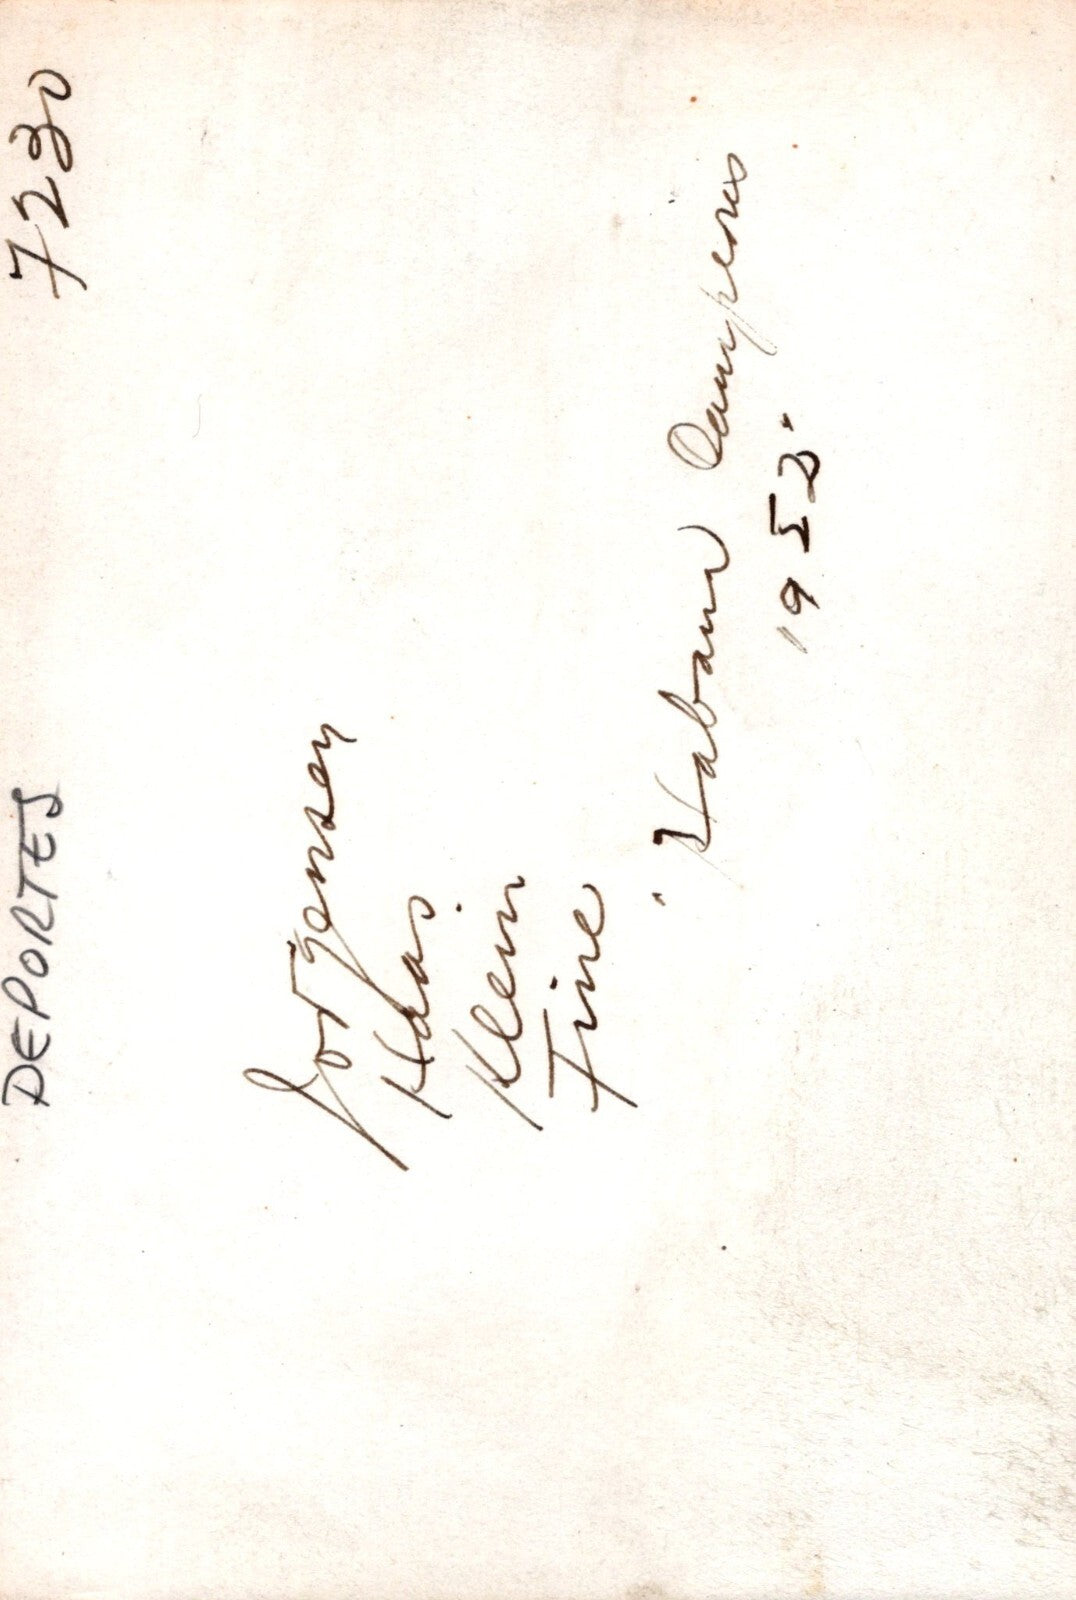 DEPORTES 7230
Jorgensen
Haas.
Klein
Fine
"Habana Campeones
1953.